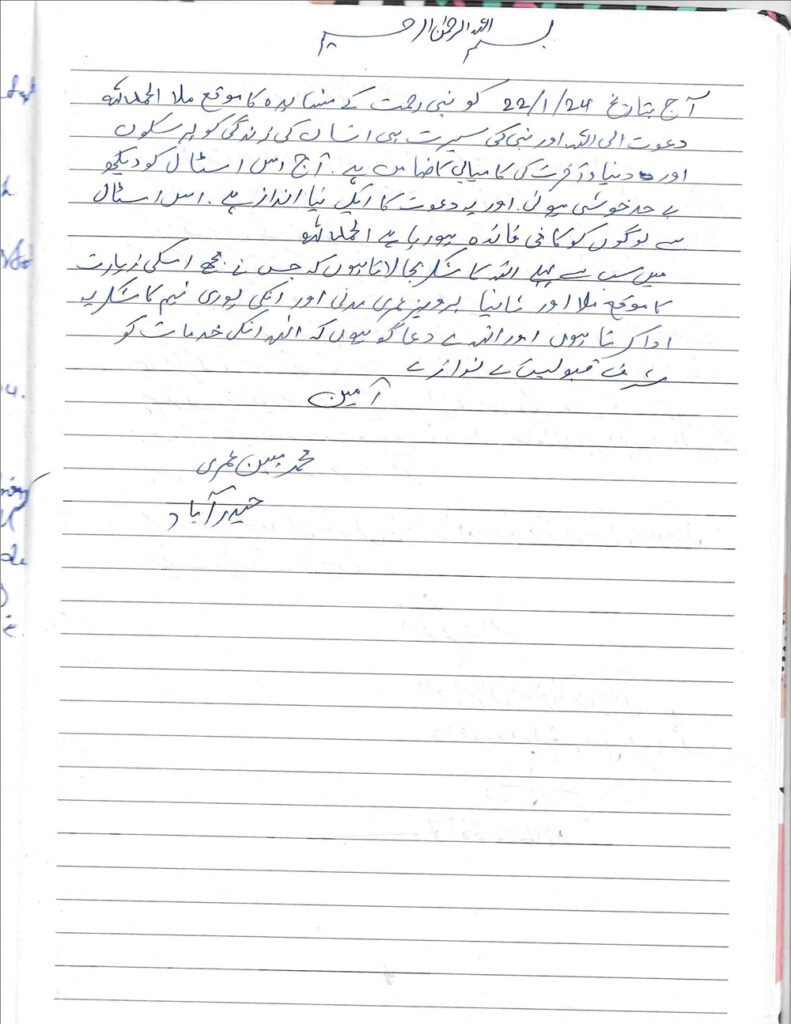 بسم اللہ الرحمٰن الرحیم
آج بتاریخ 22/1/24 کو نبی رحمت کے مشاہدہ کا موقع ملا الحمدللہ
دعوت الی اللہ اور نبی کی سیرت ہی انسان کی زندگی کو پر سکون
اور دنیا و آخرت کی کامیابی کا ضامن ہے۔ آج اس اسٹال کو دیکھ
بے حد خوشی ہوئی اور یہ دعوت کا ایک نیا انداز ہے۔ اس اسٹال
سے لوگوں کو کافی فائدہ ہو رہا ہے الحمدللہ
میں سب سے پہلے اللہ کا شکر بجا لاتا ہوں کہ جس نے مجھے اسکی زیارت
کا موقع ملا اور ثانیا پرویز عمری مدنی اور انکی پوری ٹیم کا شکریہ
ادا کرتا ہوں اور اللہ سے دعا گو ہوں کہ اللہ انکی خدمات کو
شرف قبولیت سے نوازے
آمین
محمد مبین عمری
حیدرآباد